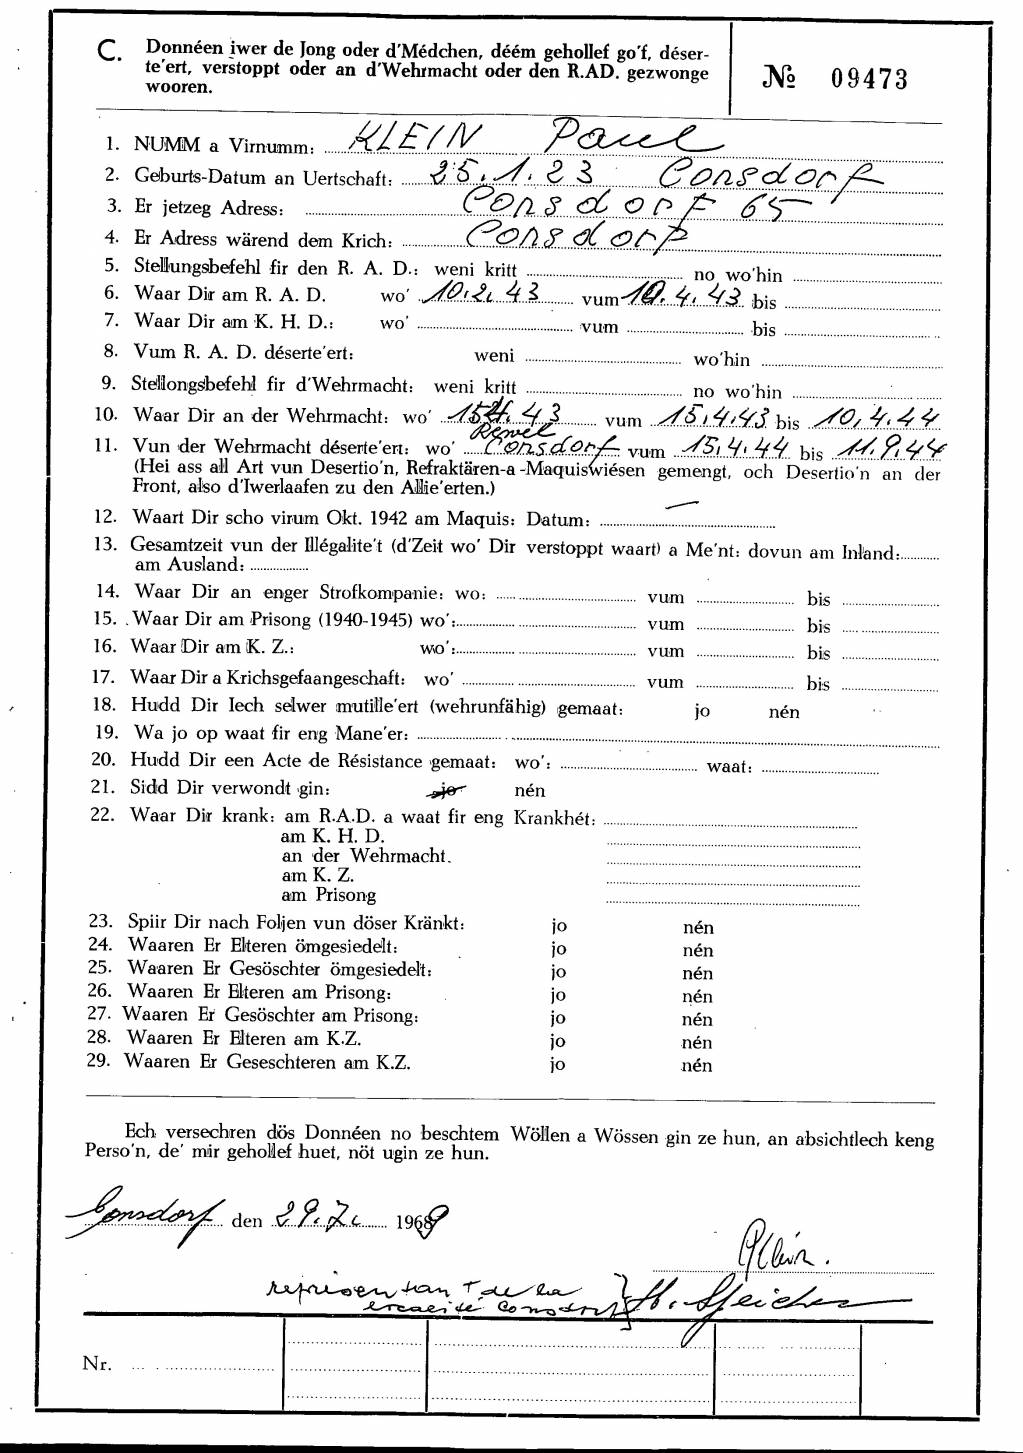 C. Donnéen iwer de Jong oder d'Médchen, déém gehollef go'f, déser-
te'ert, verstoppt oder an d'Wehrmacht oder den R.AD. gezwonge
wooren.
№ 09473
1. NUMM a Virnumm: KLEIN Paul
2. Geburts-Datum an Uertschaft: 25.1.23 Consdorf
3. Er jetzeg Adress: Consdorf 65
4. Er Adress wärend dem Krich: Consdorf
5. Stellungsbefehl fir den R. A. D.: weni kritt no wo'hin
6. Waar Dir am R. A. D. wo' 10.2.43 vum 10.4.43 bis
7. Waar Dir am K. H. D.: wo' vum bis
8. Vum R. A. D. déserte'ert: weni wo'hin
9. Stellongsbefehl fir d'Wehrmacht: weni kritt no wo'hin
10. Waar Dir an der Wehrmacht: wo' 15.4.43 vum 15.4.43 bis 10.4.44
Rewel
11. Vun der Wehrmacht déserte'ert: wo' Consdorf vum 15.4.44 bis 11.9.44
(Hei ass all Art vun Desertio'n, Refraktären-a -Maquiswiésen gemengt, och Desertio'n an der
Front, also d'Iwerlaafen zu den Allie'erten.)
12. Waart Dir scho virum Okt. 1942 am Maquis: Datum: —
13. Gesamtzeit vun der Illégalite't (d'Zeit wo' Dir verstoppt waart) a Me'nt: dovun am Inland:
am Ausland:
14. Waar Dir an enger Strofkompanie: wo: vum bis
15. Waar Dir am Prisong (1940-1945) wo': vum bis
16. Waar Dir am K. Z.: wo': vum bis
17. Waar Dir a Krichsgefaangeschaft: wo' vum bis
18. Hudd Dir Iech selwer mutille'ert (wehrunfähig) gemaat: jo nén
19. Wa jo op waat fir eng Mane'er:
20. Hudd Dir een Acte de Résistance gemaat: wo': waat:
21. Sidd Dir verwondt gin: jo nén
22. Waar Dir krank: am R.A.D. a waat fir eng Krankhét:
am K. H. D.
an der Wehrmacht.
am K. Z.
am Prisong
23. Spiir Dir nach Foljen vun döser Kränkt: jo nén
24. Waaren Er Elteren ömgesiedelt: jo nén
25. Waaren Er Gesöschter ömgesiedelt: jo nén
26. Waaren Er Elteren am Prisong: jo nén
27. Waaren Er Gesöschter am Prisong: jo nén
28. Waaren Er Elteren am K.Z. jo nén
29. Waaren Er Geseschteren am K.Z. jo nén
Ech versechren dös Donnéen no beschtem Wöllen a Wössen gin ze hun, an absichtlech keng
Perso'n, de' mir gehollef huet, nöt ugin ze hun.
Consdorf den 29.7. 1969
PKlein.
représentant de la
localité Consdorf
Nr.